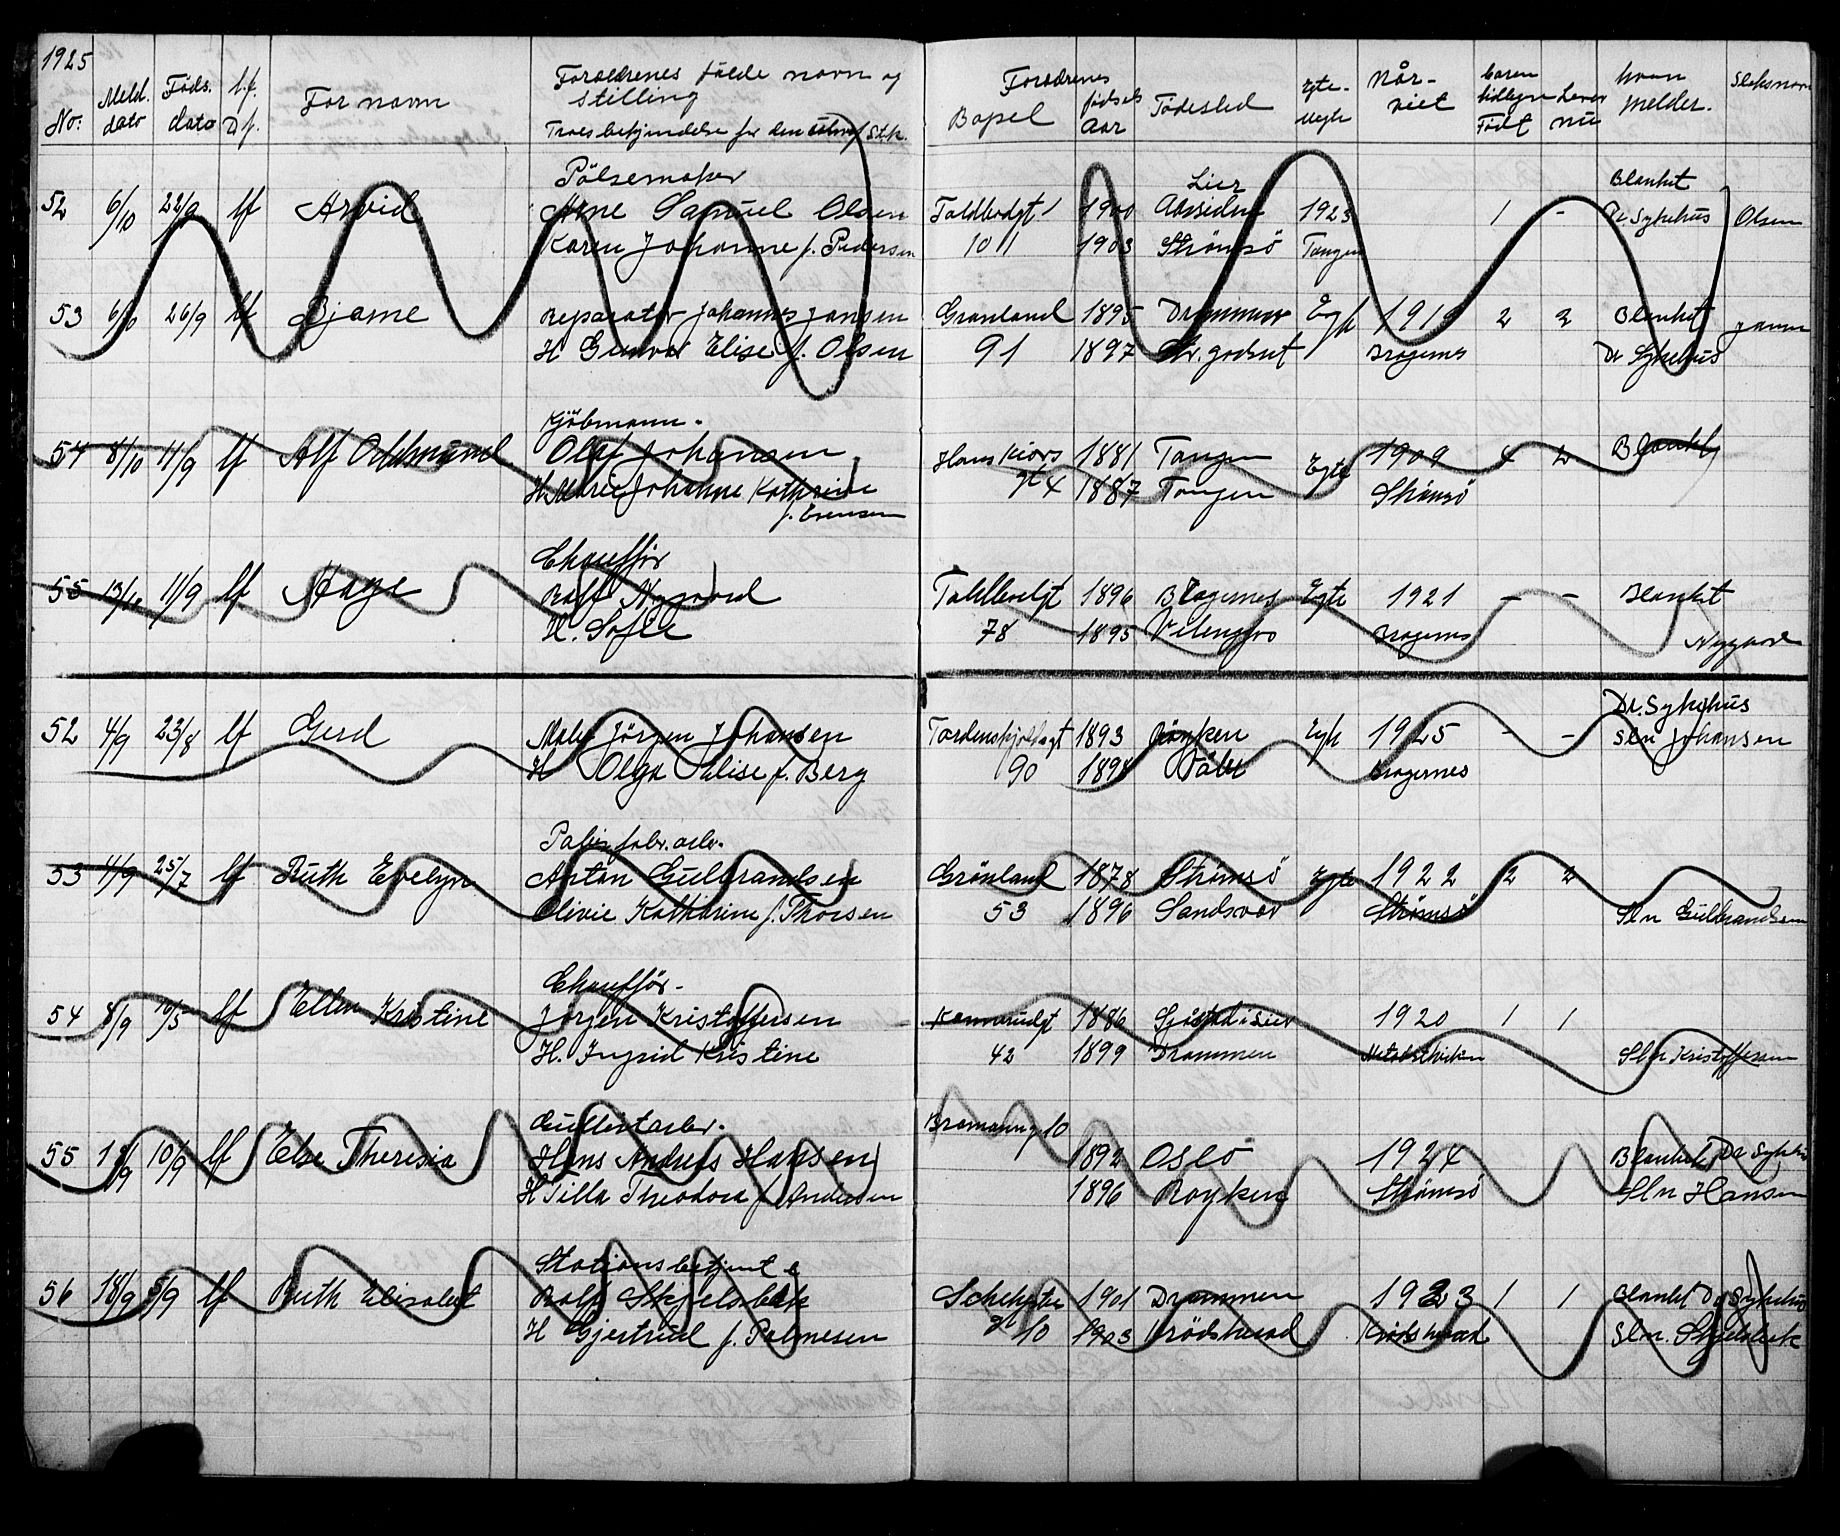 1925
No: Meld. dato Föds. dato lf. Df. For navn Forældrenes fulde navn og stilling
Troesbekjendelse for den utenf Stk. Forældrenes Bopel födsels Aar Födested Egte-uegte Når-viet baren tidligere Födt Lever nu hvem melder. Slektsnavn
Pölsemaker Lier Blanket
52 6/10 22/9 lf Arvid Arne Samuel Olsen Toldbodgt 1900 1923 1 - Dr Sykehus Olsen
Karen Johanne f. Pedersen 101 1903 Strömsö Tangen
53 6/10 26/9 lf Bjarne Reparatør Johannes Jansen Grønland 1895 Drammen Egt 1919 2 2 Blanket
H Gunvor Elise f. Olsen 91 1897 Str. godset Bragernes Dr Sykehus
Kjöbmann.
54 8/10 11/9 lf Alf Oddmund Olaf Johansen. Hans Kiærs 1881 Tangen Egte 1909 4 2 Blankt
H. Marie Johanne Kathrine gt 4 1887 Tangen Strömsö
f. Evensen
Chauffør
55 13/10 11/9 lf Aage Rolf Nygaard Toldbodgt 1896 Bragernes Egte 1921 - - Blanket
H. Sofie 78 1895 Bragernes Nygaard
Dr. Sykehus
52 4/9 23/8 lf Gerd Maler Jörgen Johansen Tordenskjoldsgt 1893 Röyken Egt 1925 - - Sln Johansen
H Olga Elise f. Berg 90 Bragernes
Papirfabr. arb.
53 4/9 25/7 lf Ruth Evelyn Anton Gulbrandsen Grönland 1878 Strömsö Egte 1922 2 2
Olivie Kathrine f. Thorsen 53 1896 Sandsvær Strömsö Sln Gulbrandsen
Chauffør.
54 8/9 10/5 lf Ellen Kristine Jörgen Kristoffersen Konnerudgt 1886 Sjåstad i Lier 1920 1 1
H. Ingrid Kristine 42 1899 Drammen Sln Kristoffersen
Gullistarbr. Bremanng 10
55 12/9 10/9 lf Else Theresia Hans Andreas Hansen 1892 Oslo 1924 Blanket Dr Sykhus
H Tilla Theodora f. Andersen 1896 Royken Strömsö Sln Hansen
Stationsbetjent
56 18/9 5/9 lf Ruth Elisabet Rolf Skjelsbek 1901 Drammen 1923 1 1 Blanket Dr Sykehus
H Gjertrud f. Palmesen gt 10 1903 Krödsherad Krødsherad Sln. Skjelsbek